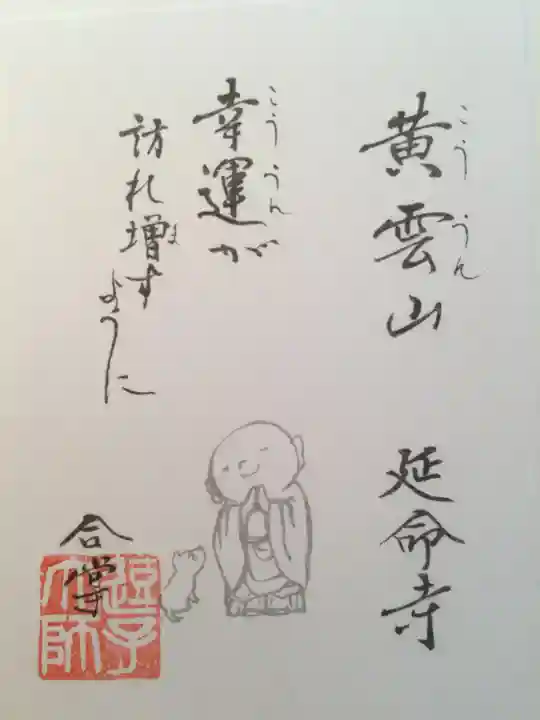 黄雲山 延命寺
こううん
幸運が
こううん
訪れ増すように
ま
合掌
逗子大師